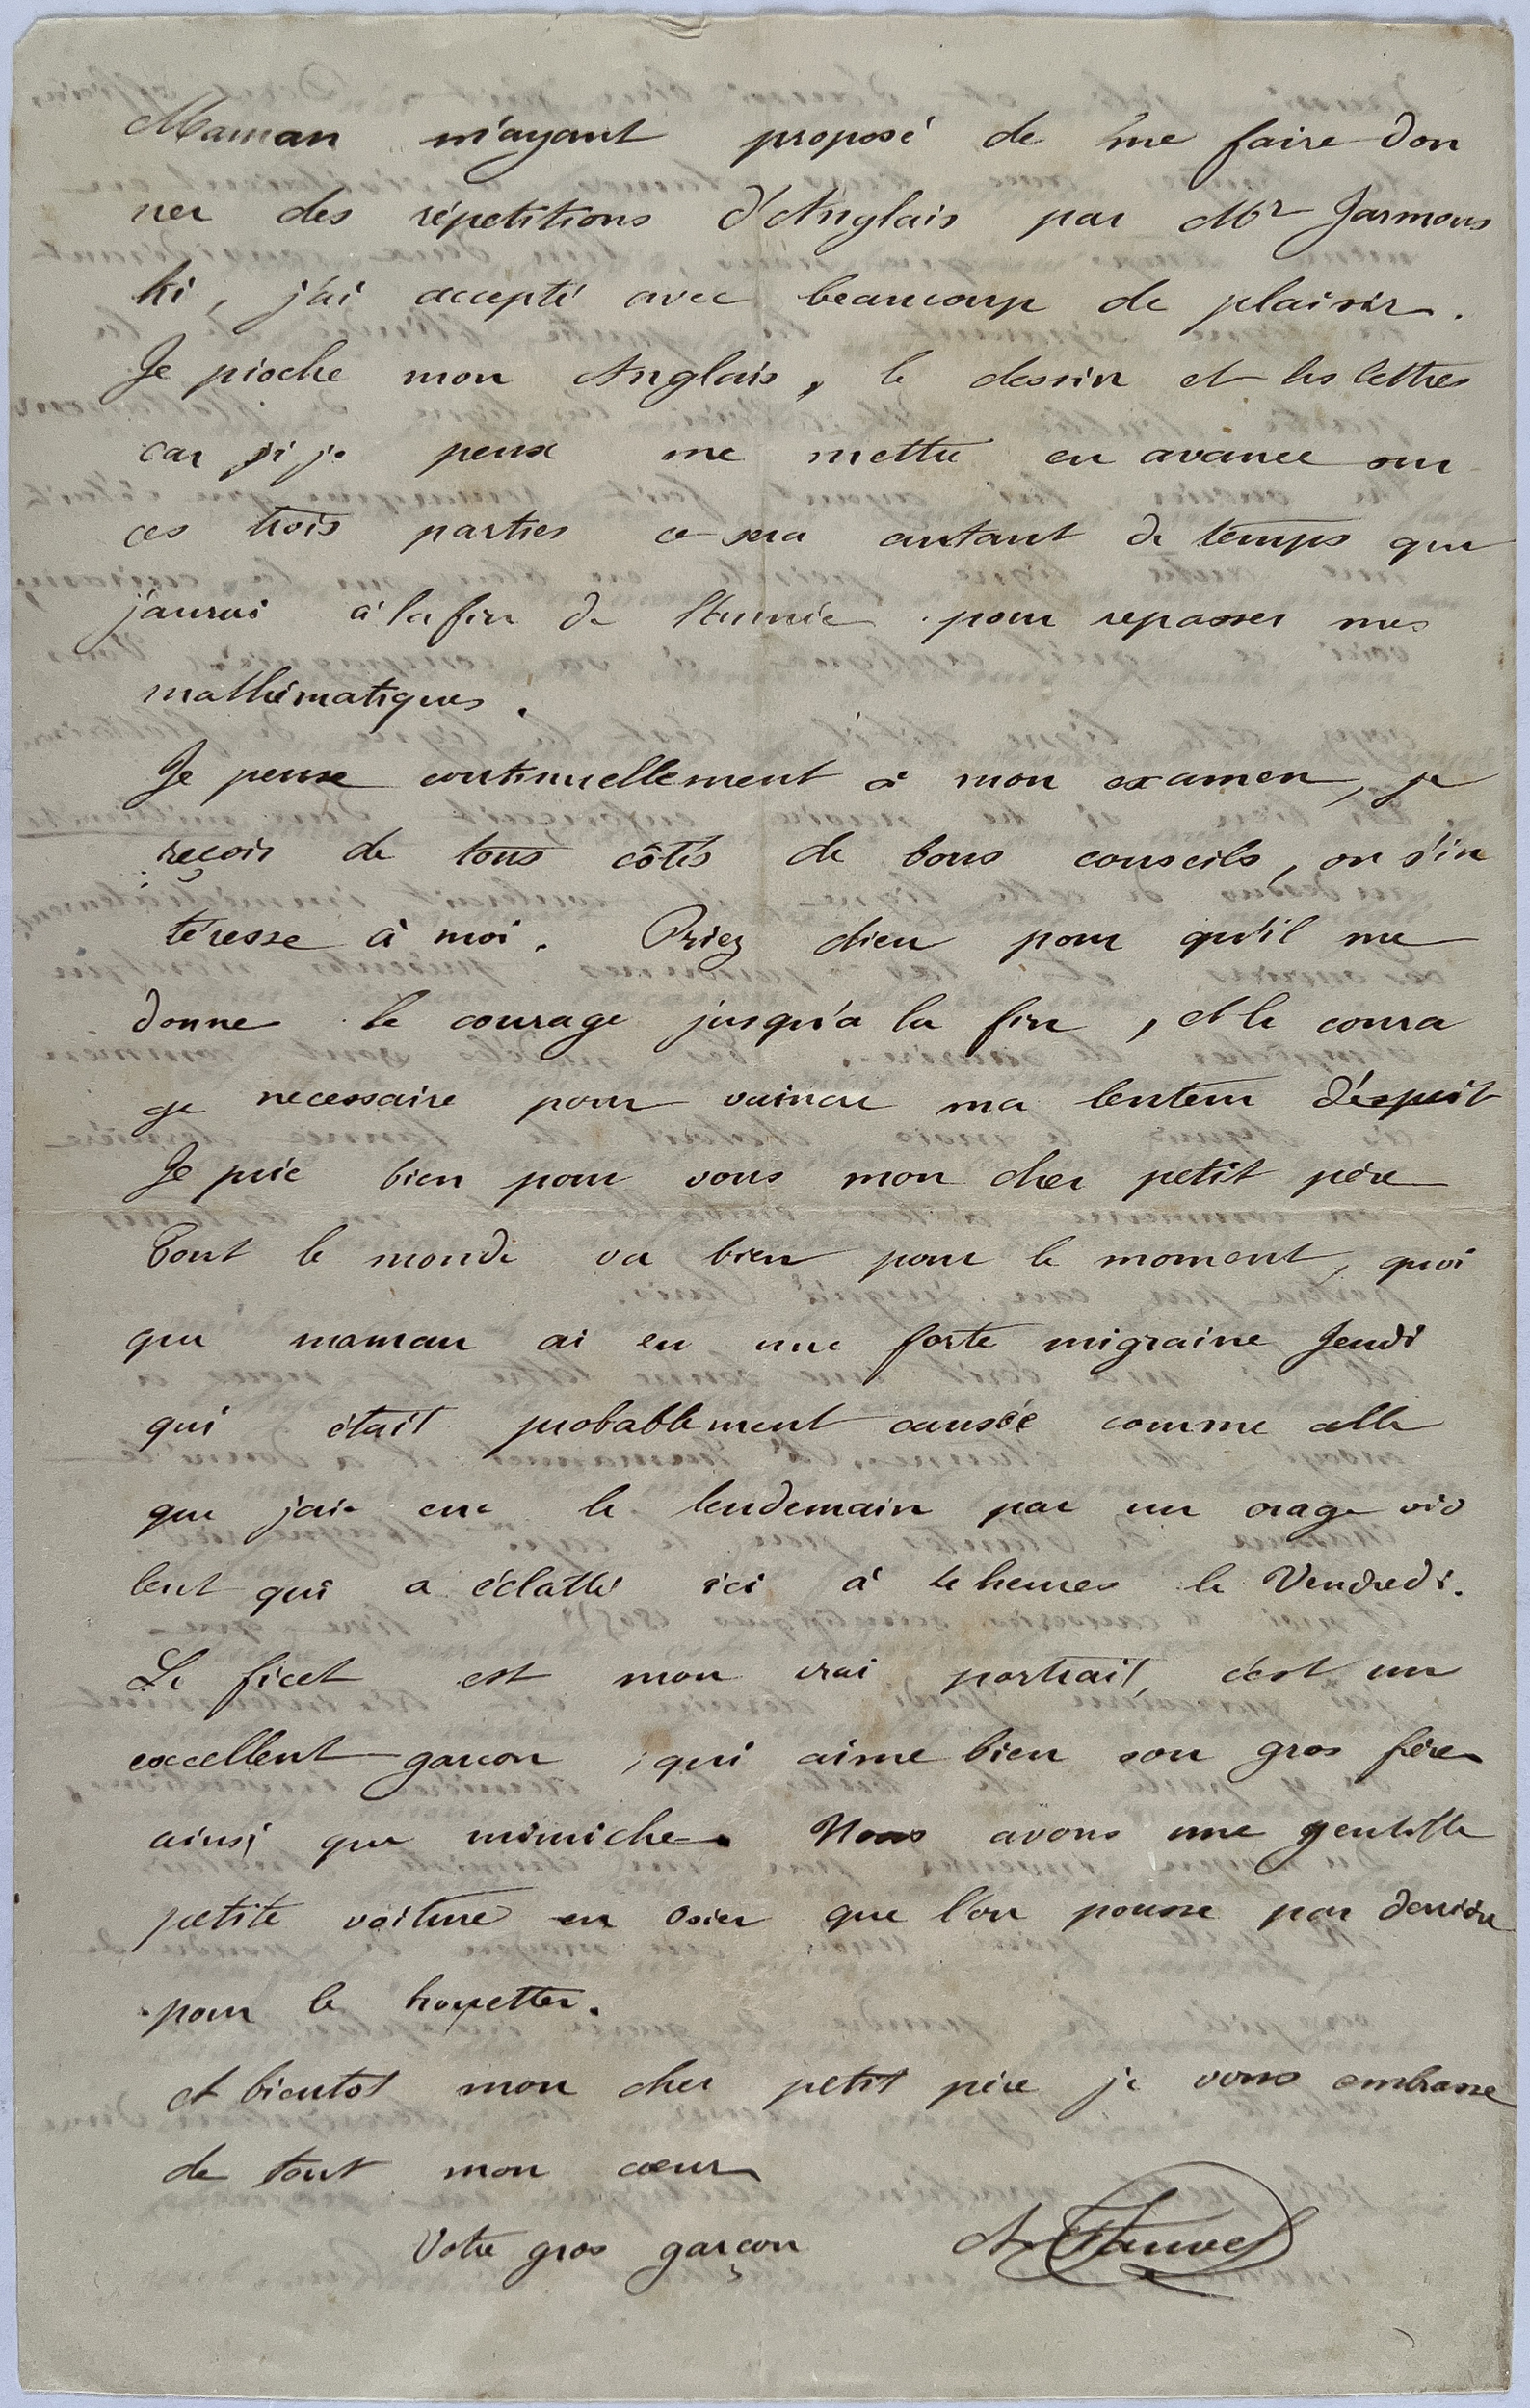 Maman m'ayant proposé de me faire don
ner des répetitions d'Anglais par Mr Jarmous
ki, j'ai accepté avec beaucoup de plaisir.
Je pioche mon Anglais, le dessin et les lettres
car si je peux me mettre en avance sur
ces trois parties ce sera autant de temps que
j'aurai à la fin de l'Année pour repasser mes
mathématiques.
Je pense continuellement à mon examen, je
reçois de tous côtés de bons conseils, on s'in
téresse à moi. Priez dieu pour qu'il me
donne le courage jusqu'a la fin, et le coura
ge necessaire pour vaincre ma lenteur d'esprit
Je prie bien pour vous mon cher petit père
Tout le monde va bien pour le moment, quoi
que maman ai eu une forte migraine Jeudi
qui était probablement causée comme celle
que j'ai eue le lendemain par un orage vio
lent qui a éclatté ici à 4 heures le Vendredi.
Le ficet est mon vrai portrait, c'est un
excellent garcon, qui aime bien son gros frère
ainsi que mimiche. Nous avons une gentille
petite voiture en osier que l'on pousse par derrière
pour le
A bientot mon cher petit père je vous embrasse
de tout mon cœur
Votre gros garçon A. Fauvel